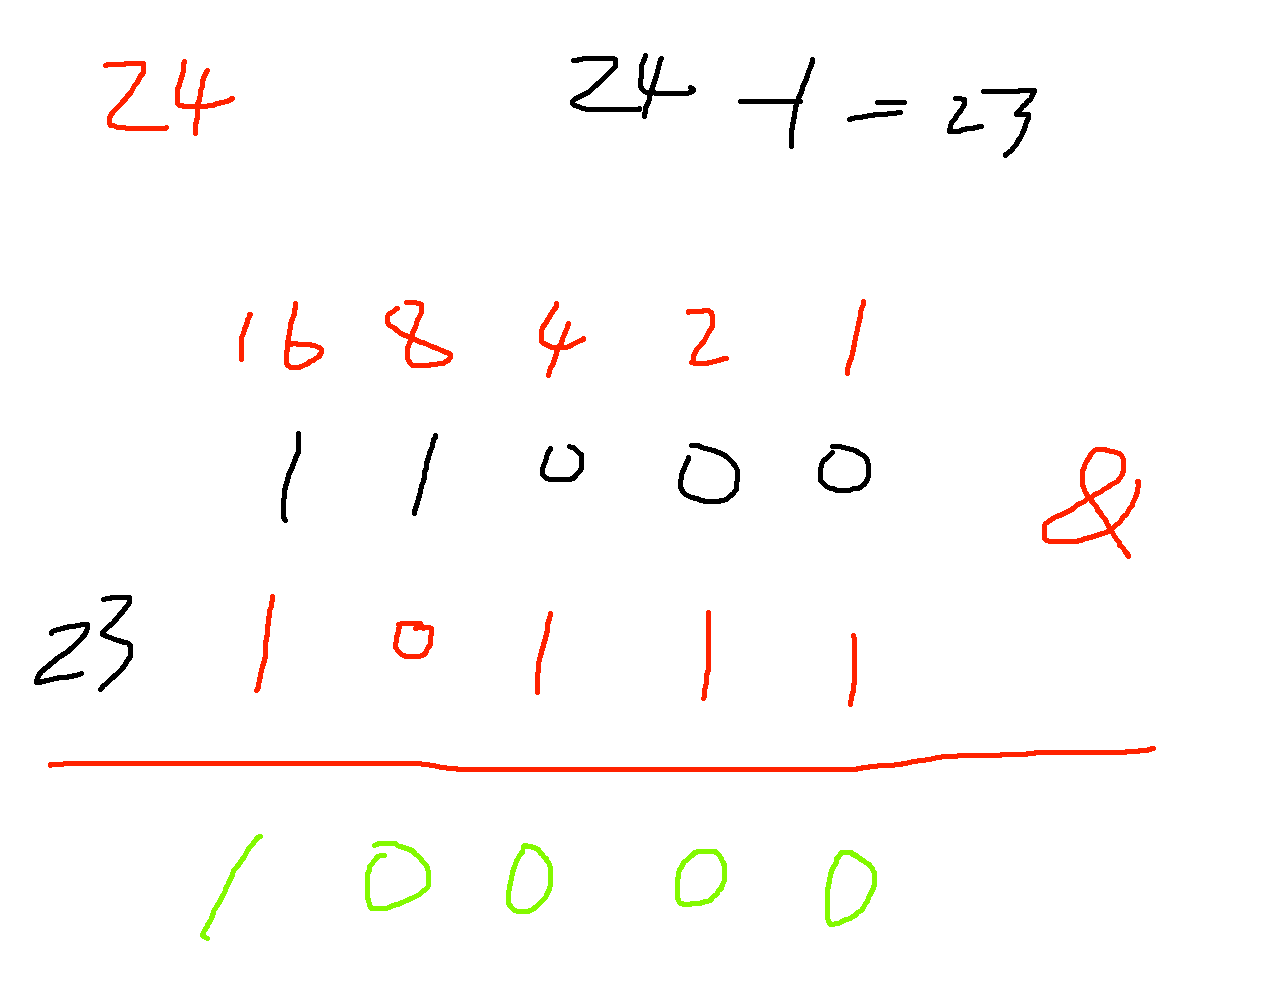 24 24 -1 = 23
16 8 4 2 1
1 1 0 0 0 &
23 1 0 1 1 1
1 0 0 0 0